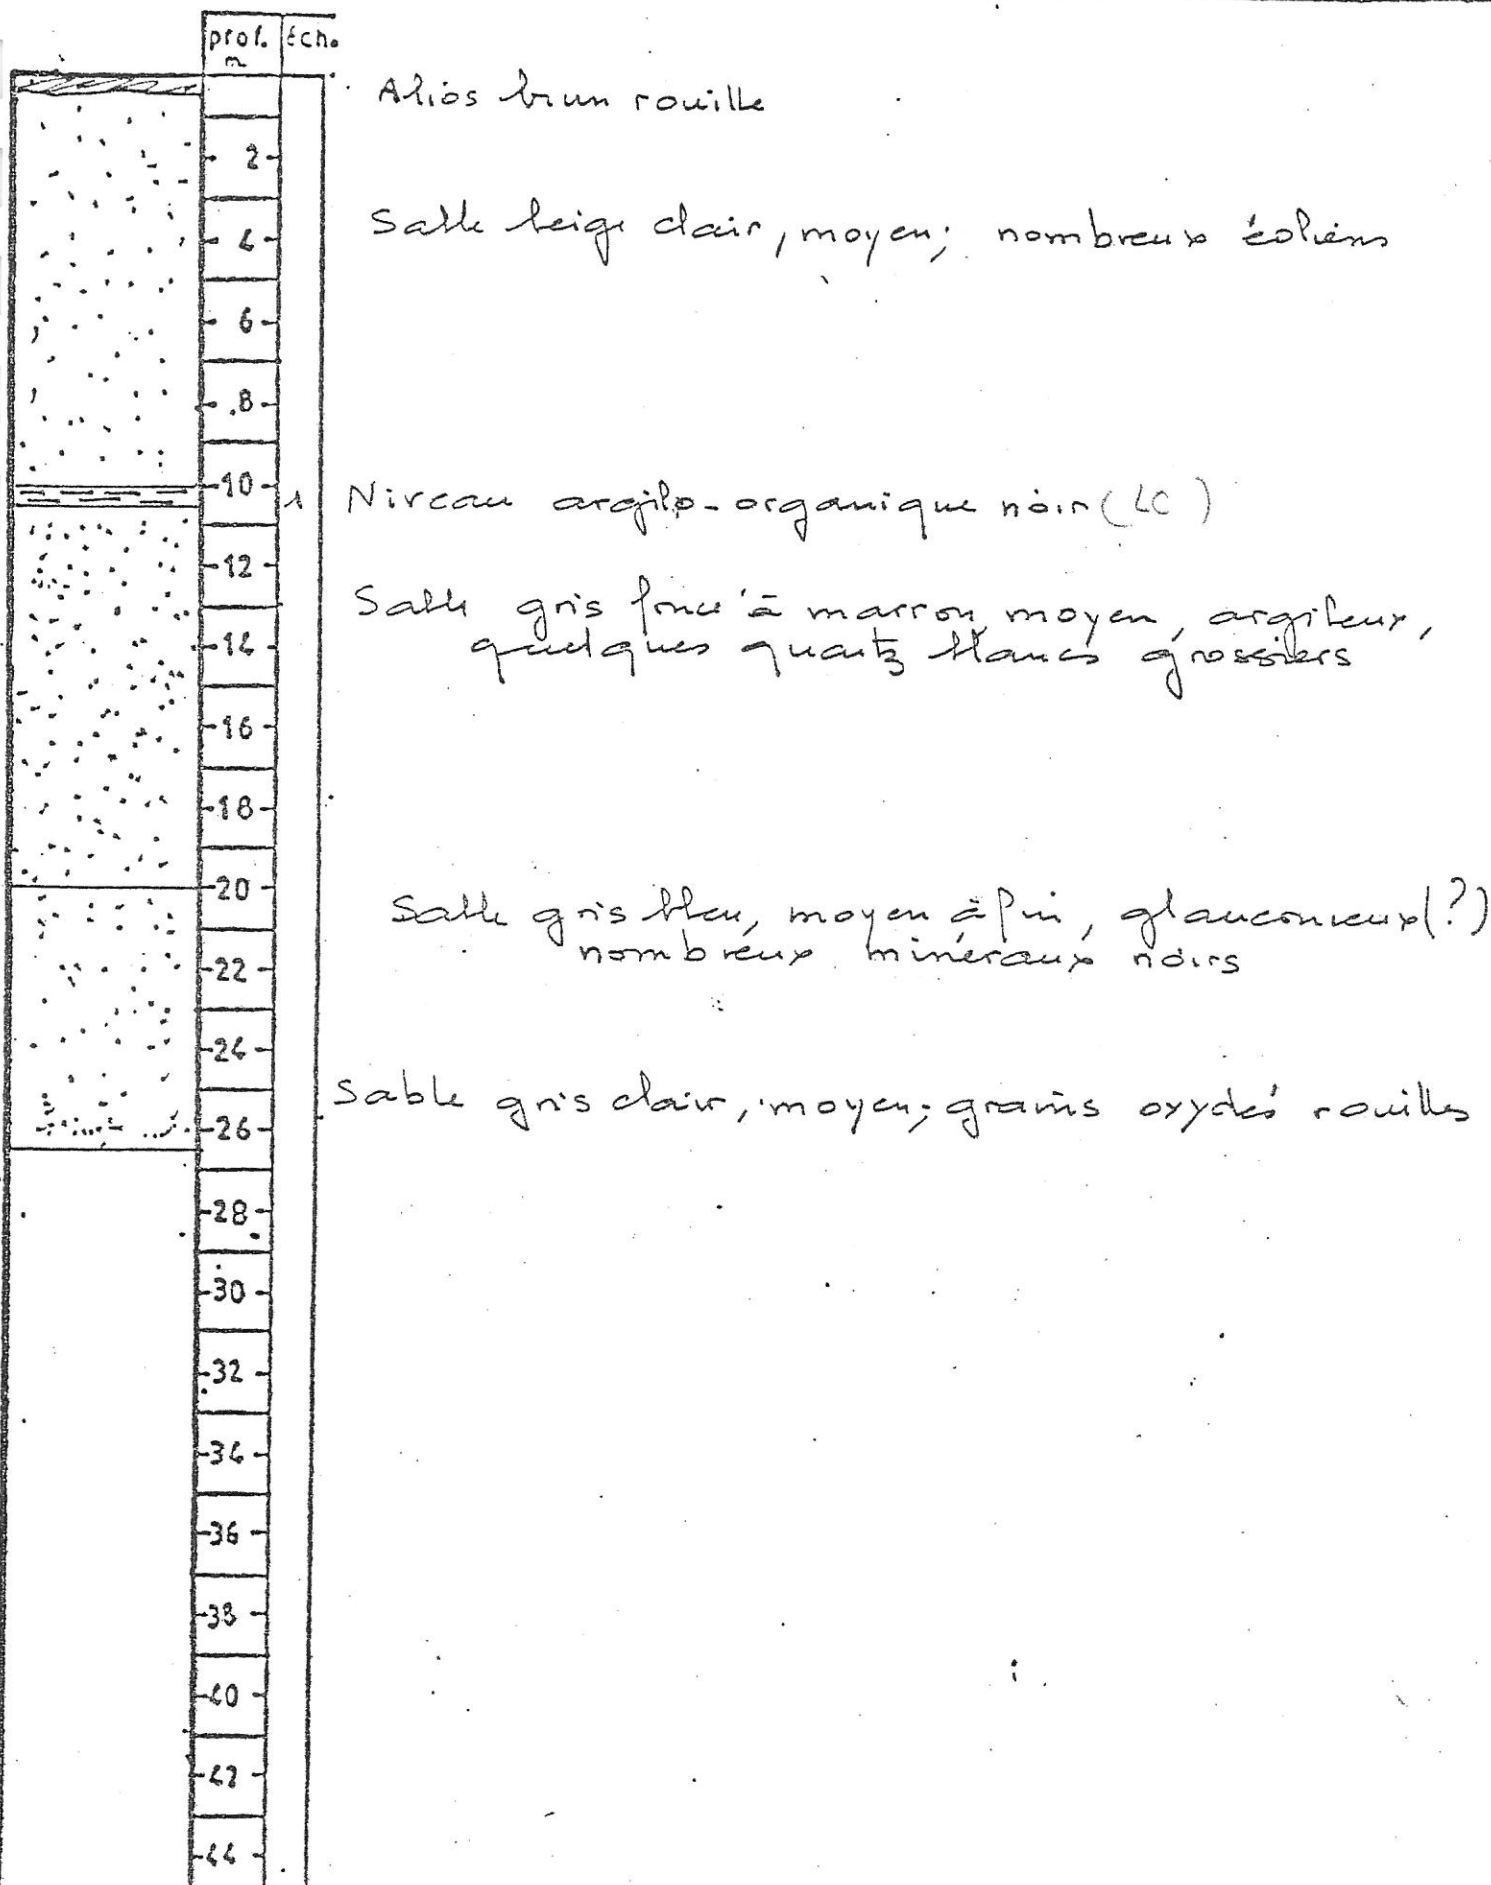 prof. Éch.
m
Alios brun rouille
2
Sable beige clair, moyen; nombreux éoliens
4
6
8
10
1 Niveau argilo-organique noir (LC)
12
Sable gris foncé à marron, moyen, argileux,
14
quelques quartz blancs grossiers
16
18
20
Sable gris bleu, moyen à fin, glauconieux (?)
nombreux minéraux noirs
22
24
Sable gris clair, moyen; grains oxydés rouilles
26
28
30
32
34
36
38
40
42
44